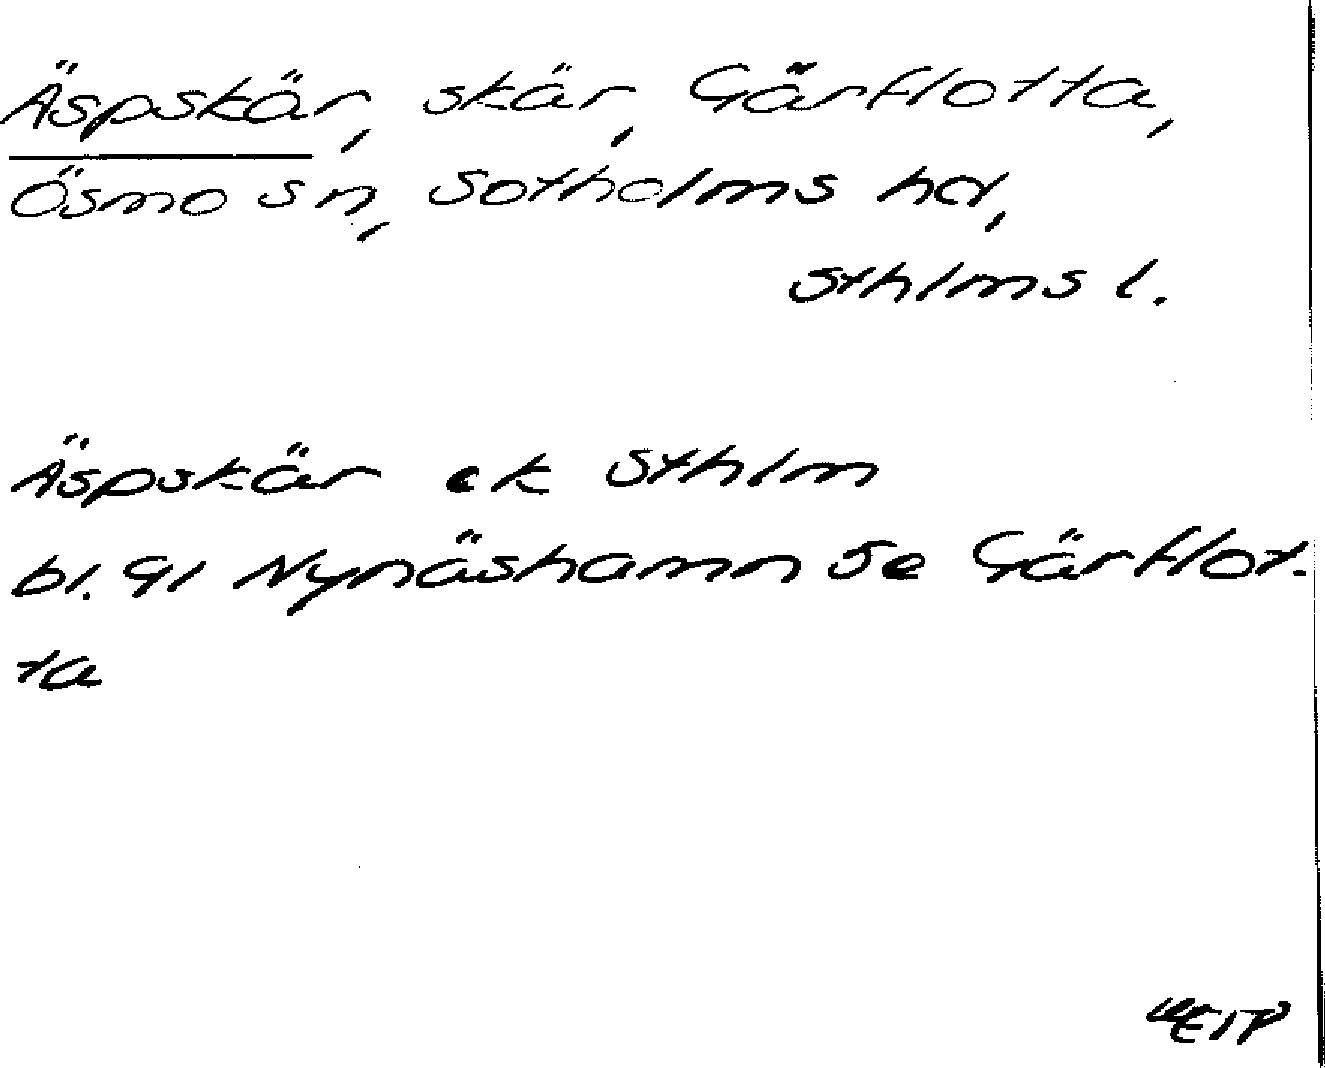 Äspskär, skär, Gårflotta,
Ösmo sn, Sotholms hd,
Sthlms l.
Äspskär ek Sthlm
bl. 91 Nynäshamn 5e Gärflot-
ta